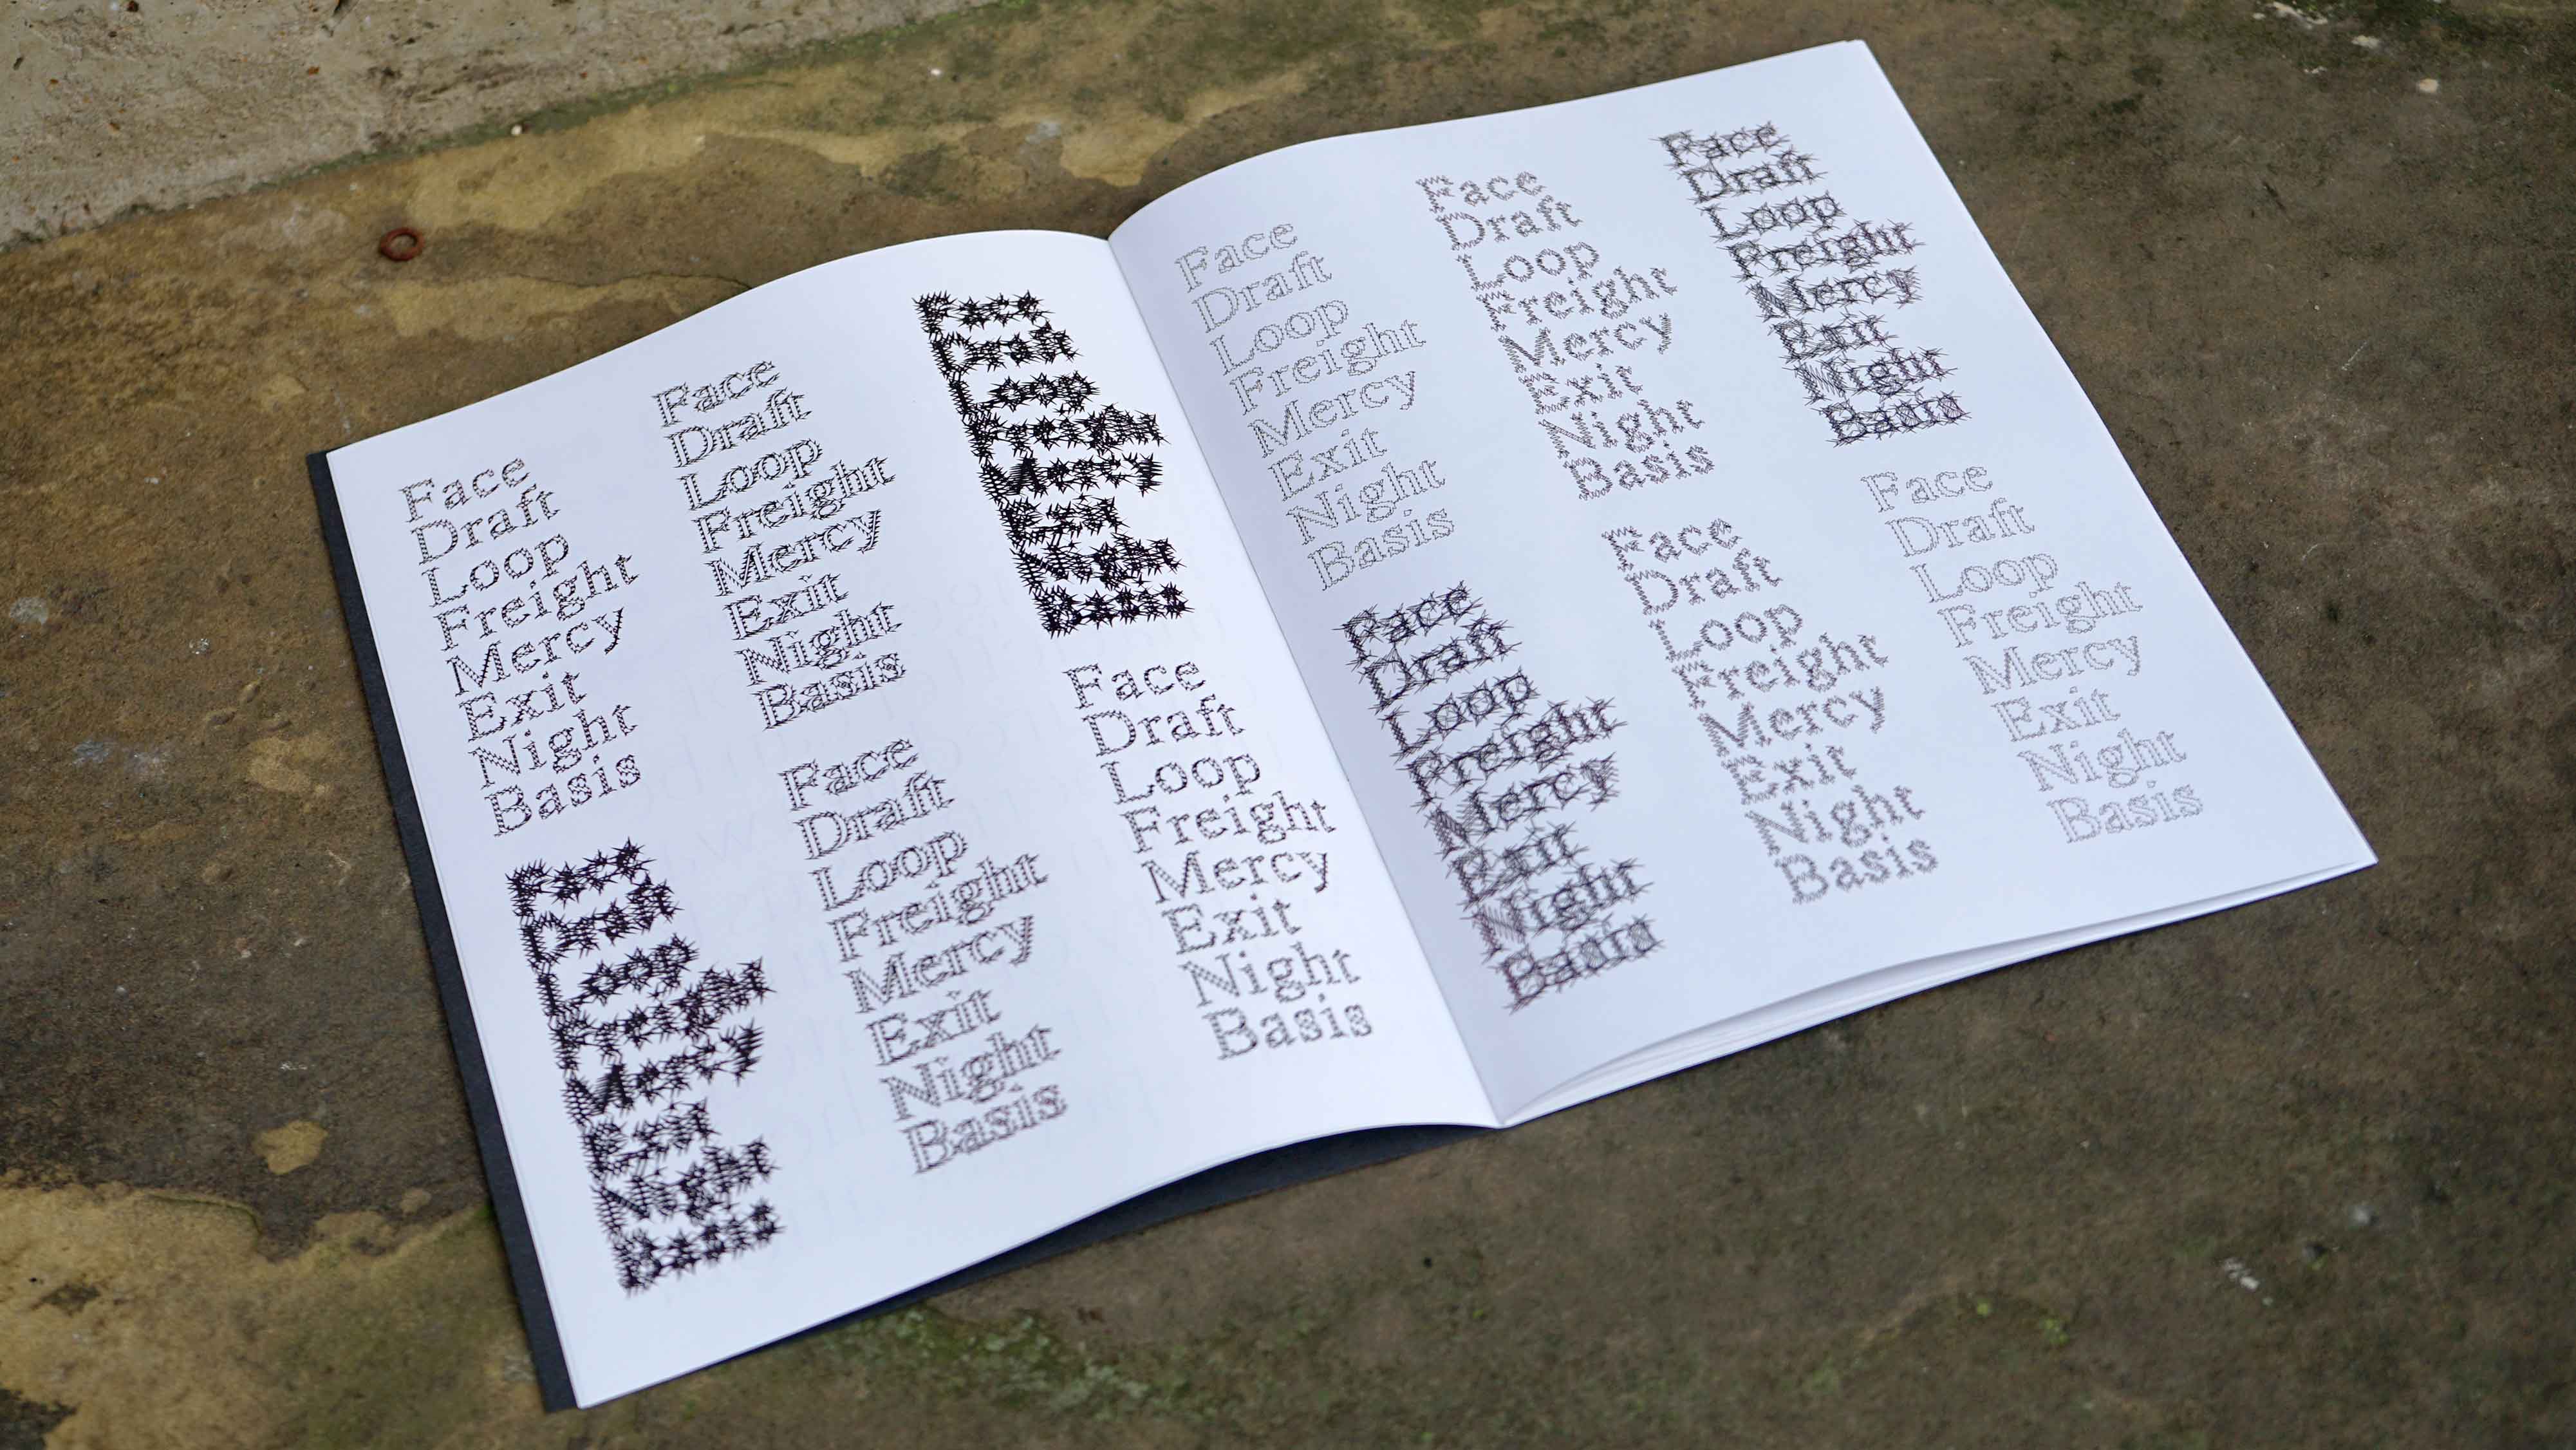 Face
Draft
Loop
Freight
Mercy
Exit
Night
Basis
Face
Draft
Loop
Freight
Mercy
Exit
Night
Basis
Face
Draft
Loop
Freight
Mercy
Exit
Night
Basis
Face
Draft
Loop
Freight
Mercy
Exit
Night
Basis
Face
Draft
Loop
Freight
Mercy
Exit
Night
Basis
Face
Draft
Loop
Freight
Mercy
Exit
Night
Basis
Face
Draft
Loop
Freight
Mercy
Exit
Night
Basis
Face
Draft
Loop
Freight
Mercy
Exit
Night
Basis
Face
Draft
Loop
Freight
Mercy
Exit
Night
Basis
Face
Draft
Loop
Freight
Mercy
Exit
Night
Basis
Face
Draft
Loop
Freight
Mercy
Exit
Night
Basis
Face
Draft
Loop
Freight
Mercy
Exit
Night
Basis